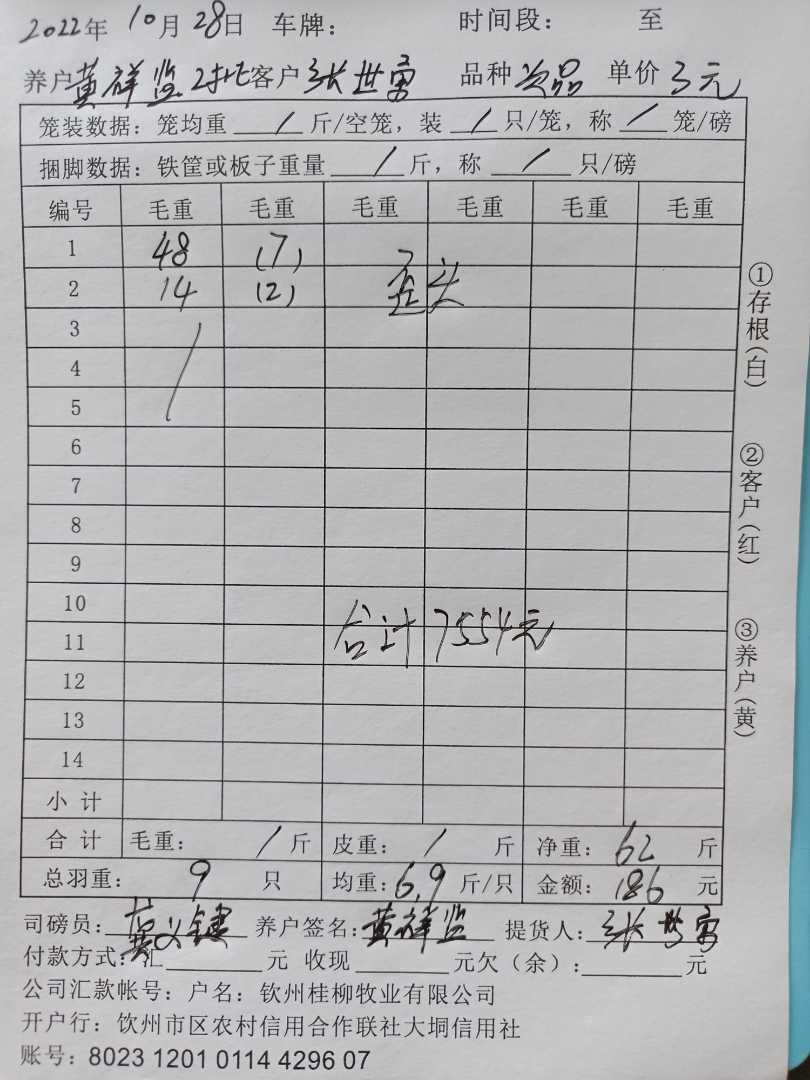 2022年 10月 28日 车牌： 时间段： 至
养户 黄祥监 2批 客户 张世富 品种 次品 单价 3元
笼装数据：笼均重 / 斤/空笼，装 / 只/笼，称 / 笼/磅
捆脚数据：铁筐或板子重量 / 斤，称 / 只/磅
编号 毛重 毛重 毛重 毛重 毛重 毛重
1 48 (7)
2 14 (2) 歪头
3
4
5
6
7
8
9
10
合计 7554元
11
12
13
14
小计
合计 毛重： / 斤 皮重： / 斤 净重： 62 斤
总羽重： 9 只 均重： 6.9 斤/只 金额： 186 元
司磅员： 养户签名： 黄祥监 提货人： 张世富
付款方式：汇 元 收现 元欠（余）： 元
公司汇款帐号：户名：钦州桂柳牧业有限公司
开户行：饮州市区农村信用合作联社大垌信用社
账号：8023 1201 0114 4296 07
①存根（白）
②客户（红）
③养户（黄）